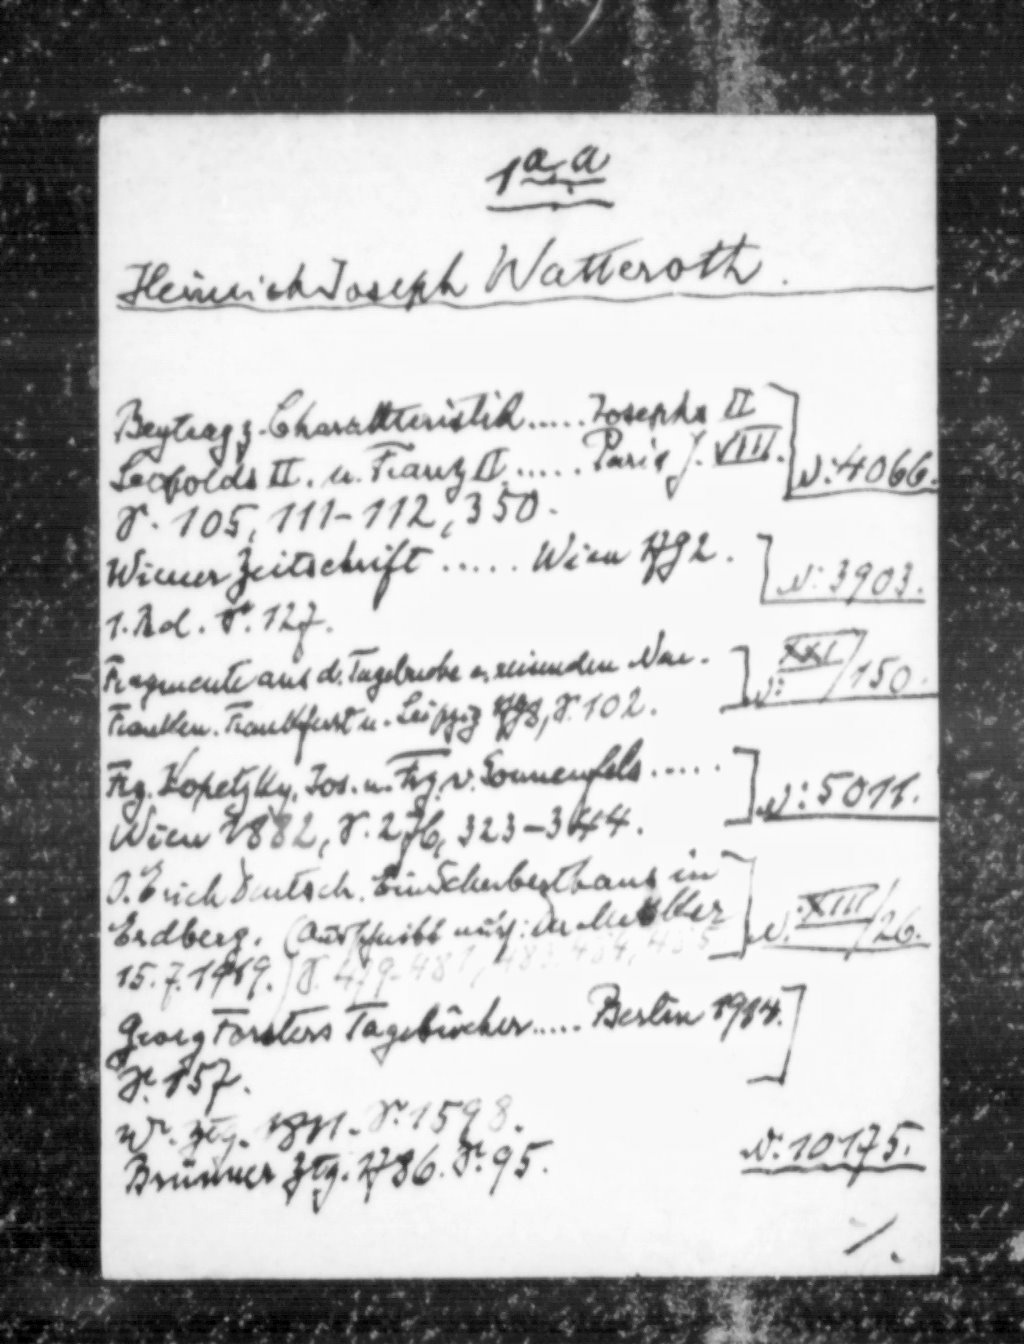 1a.a
Heinrich Joseph Watteroth.
Beytrag z. Charakteristik ..... Josephs II
Leopolds II. u. Franz II. ..... Paris J. VIII. N: 4066.
S. 105, 111-112, 350.
Wiener Zeitschrift ..... Wien 1792. N: 3903.
1. Bd. S. 127.
Fragmente aus d. Tagebuche e. reisenden Neu- N: XXI/150.
Franken. Frankfurt u. Leipzig S. 102.
Frz. Kopetzky, Jos. u. Frz. v. Sonnenfels ..... N: 5011.
Wien 1882, S. 276, 323-344.
O. Erich Deutsch. Ein Schuberthaus in
Erdberg. (Ausschnitt aus: Der Merker N. XIII/26.
15.7.1919.) S. 479-481, 483, 484, 485
Georg Forsters Tagebücher ..... Berlin 1914.
S. 157.
W. Ztg. 1811. S. 1598.
Brünner Ztg. 1786. S. 95. N: 10175.
/.